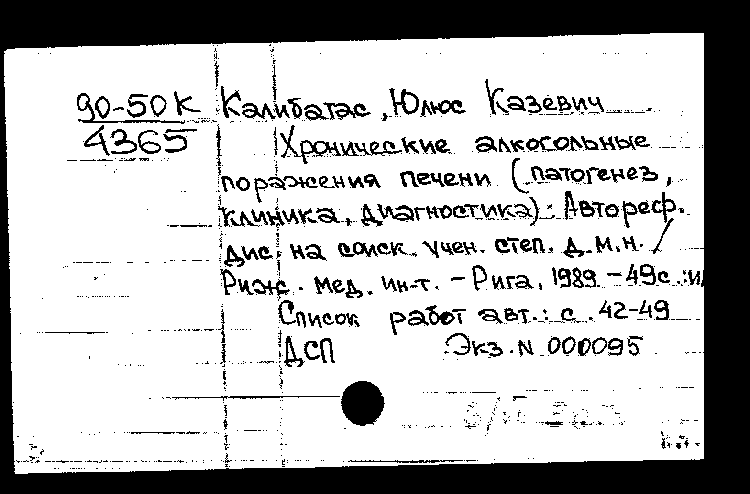 90-50К Калибатас, Юлюс Казевич
4365 Хронические алкогольные
поражения печени (патогенез,
клиника, диагностика): Автореф.
дис. на соиск. учен. степ. д.м.н. /
Риж. мед. ин-т. - Рига, 1989 - 49с.:ил
Список работ авт.: с. 42-49
ДСП Экз. N 000095